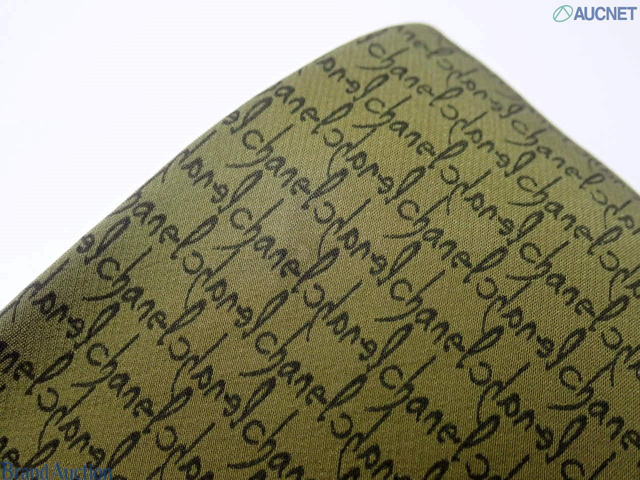 AUCNET
chanel chanel chanel
chanel chanel chanel chanel
chanel chanel chanel chanel
chanel chanel chanel chanel
chanel chanel chanel chanel
chanel chanel chanel
Brand Auction